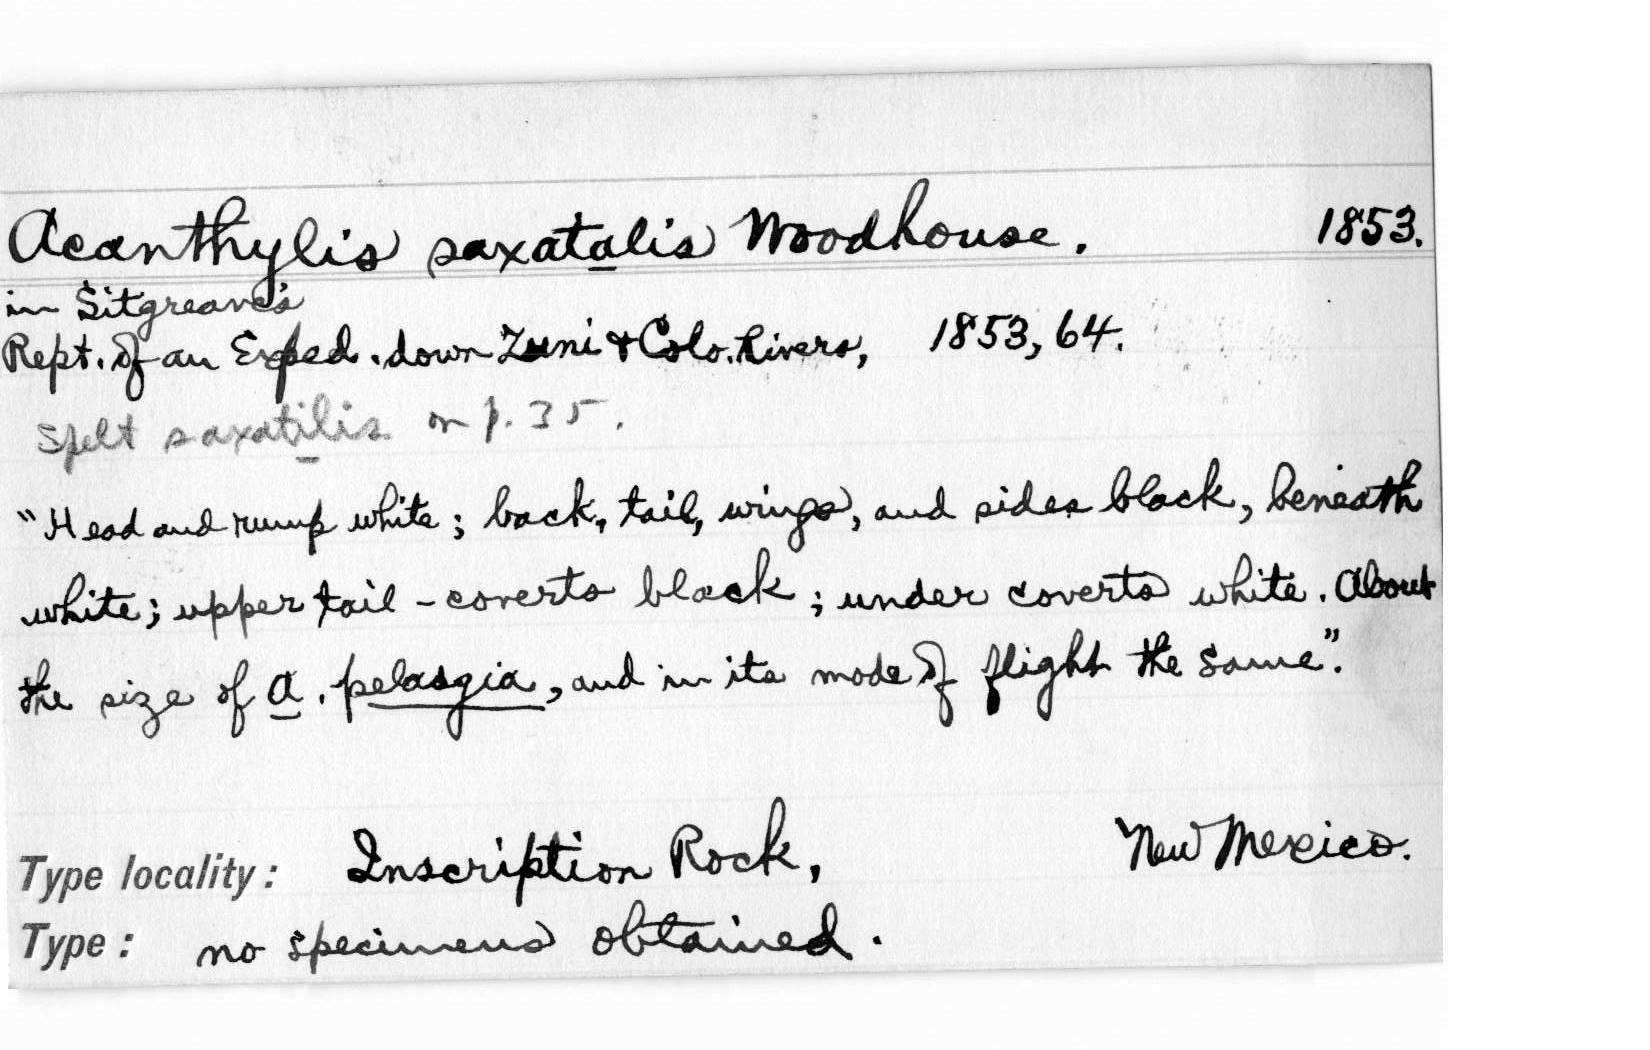 Acanthylis saxatalis Woodhouse. 1853.
in Sitgreave's
Rept. of an Exped. down Zuni & Colo. Rivers, 1853, 64.
Spelt saxatilis on p. 35.
"Head and rump white; back, tail, wings, and sides black, beneath
white; upper tail-coverts black; under coverts white. About
the size of A. pelasgia, and in its mode of flight the same".
Type locality: Inscription Rock, New Mexico.
Type: no specimens obtained.